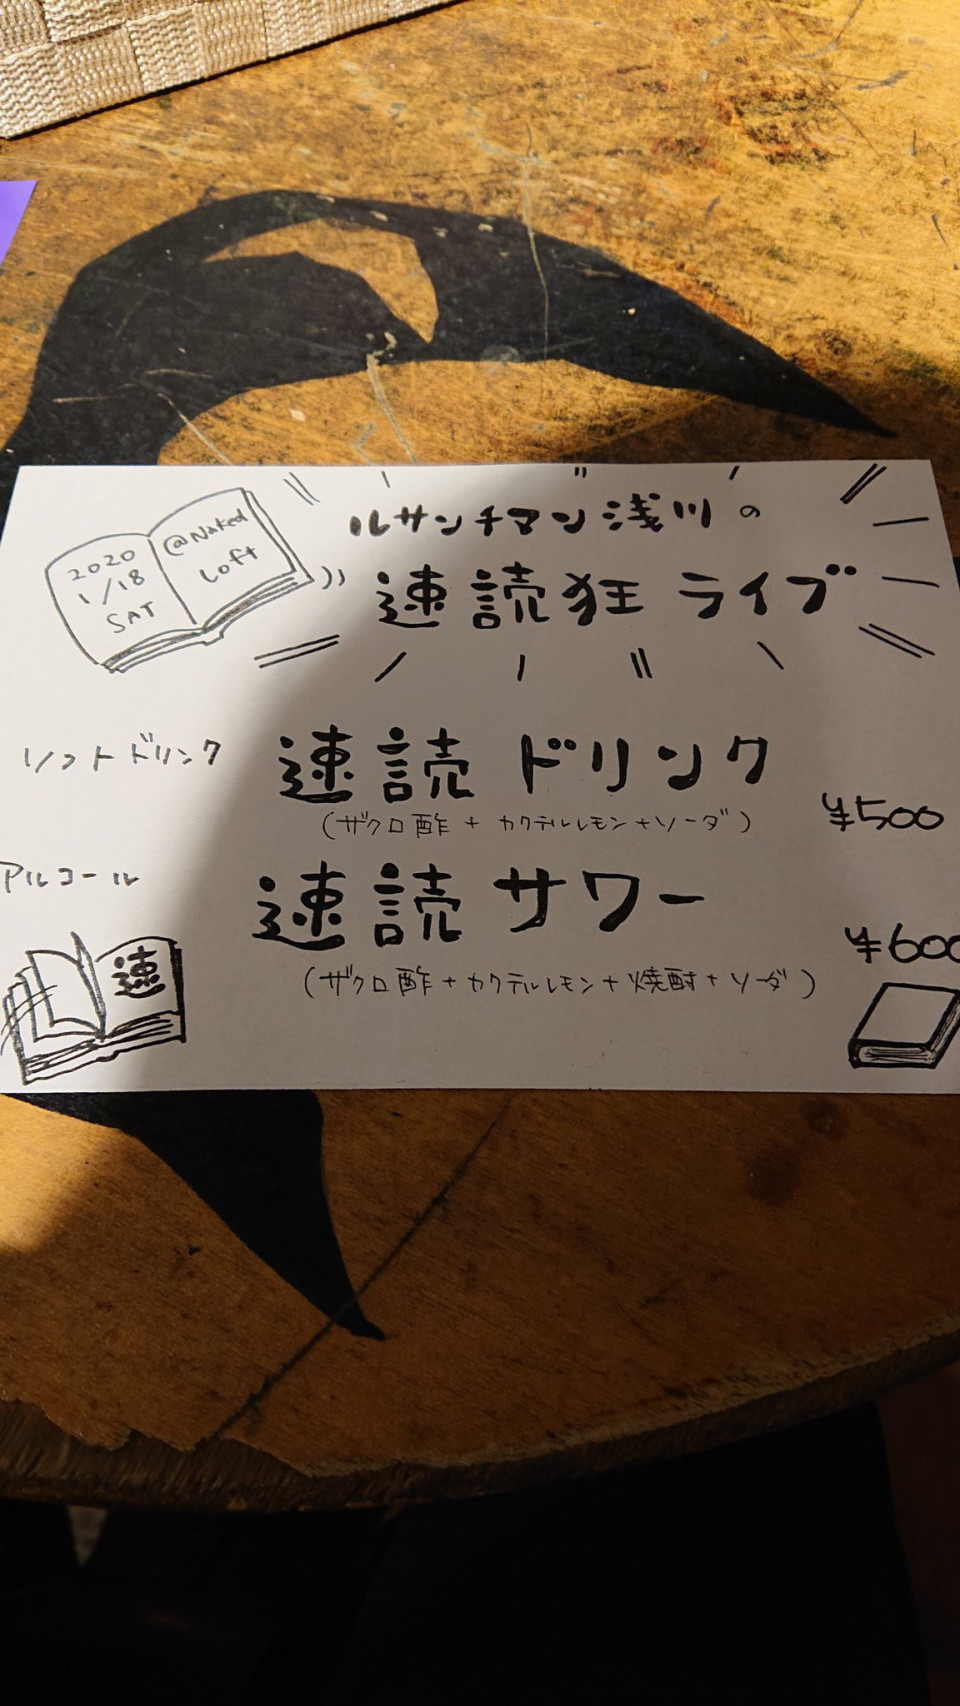 2020
1/18
SAT
@Naked
Loft
ルサンチマン浅川の
速読狂ライブ
ソフトドリンク
速読ドリンク
(ザクロ酢+カクテルレモン+ソーダ)
¥500
アルコール
速読サワー
¥600
(ザクロ酢+カクテルレモン+焼酎+ソーダ)
速